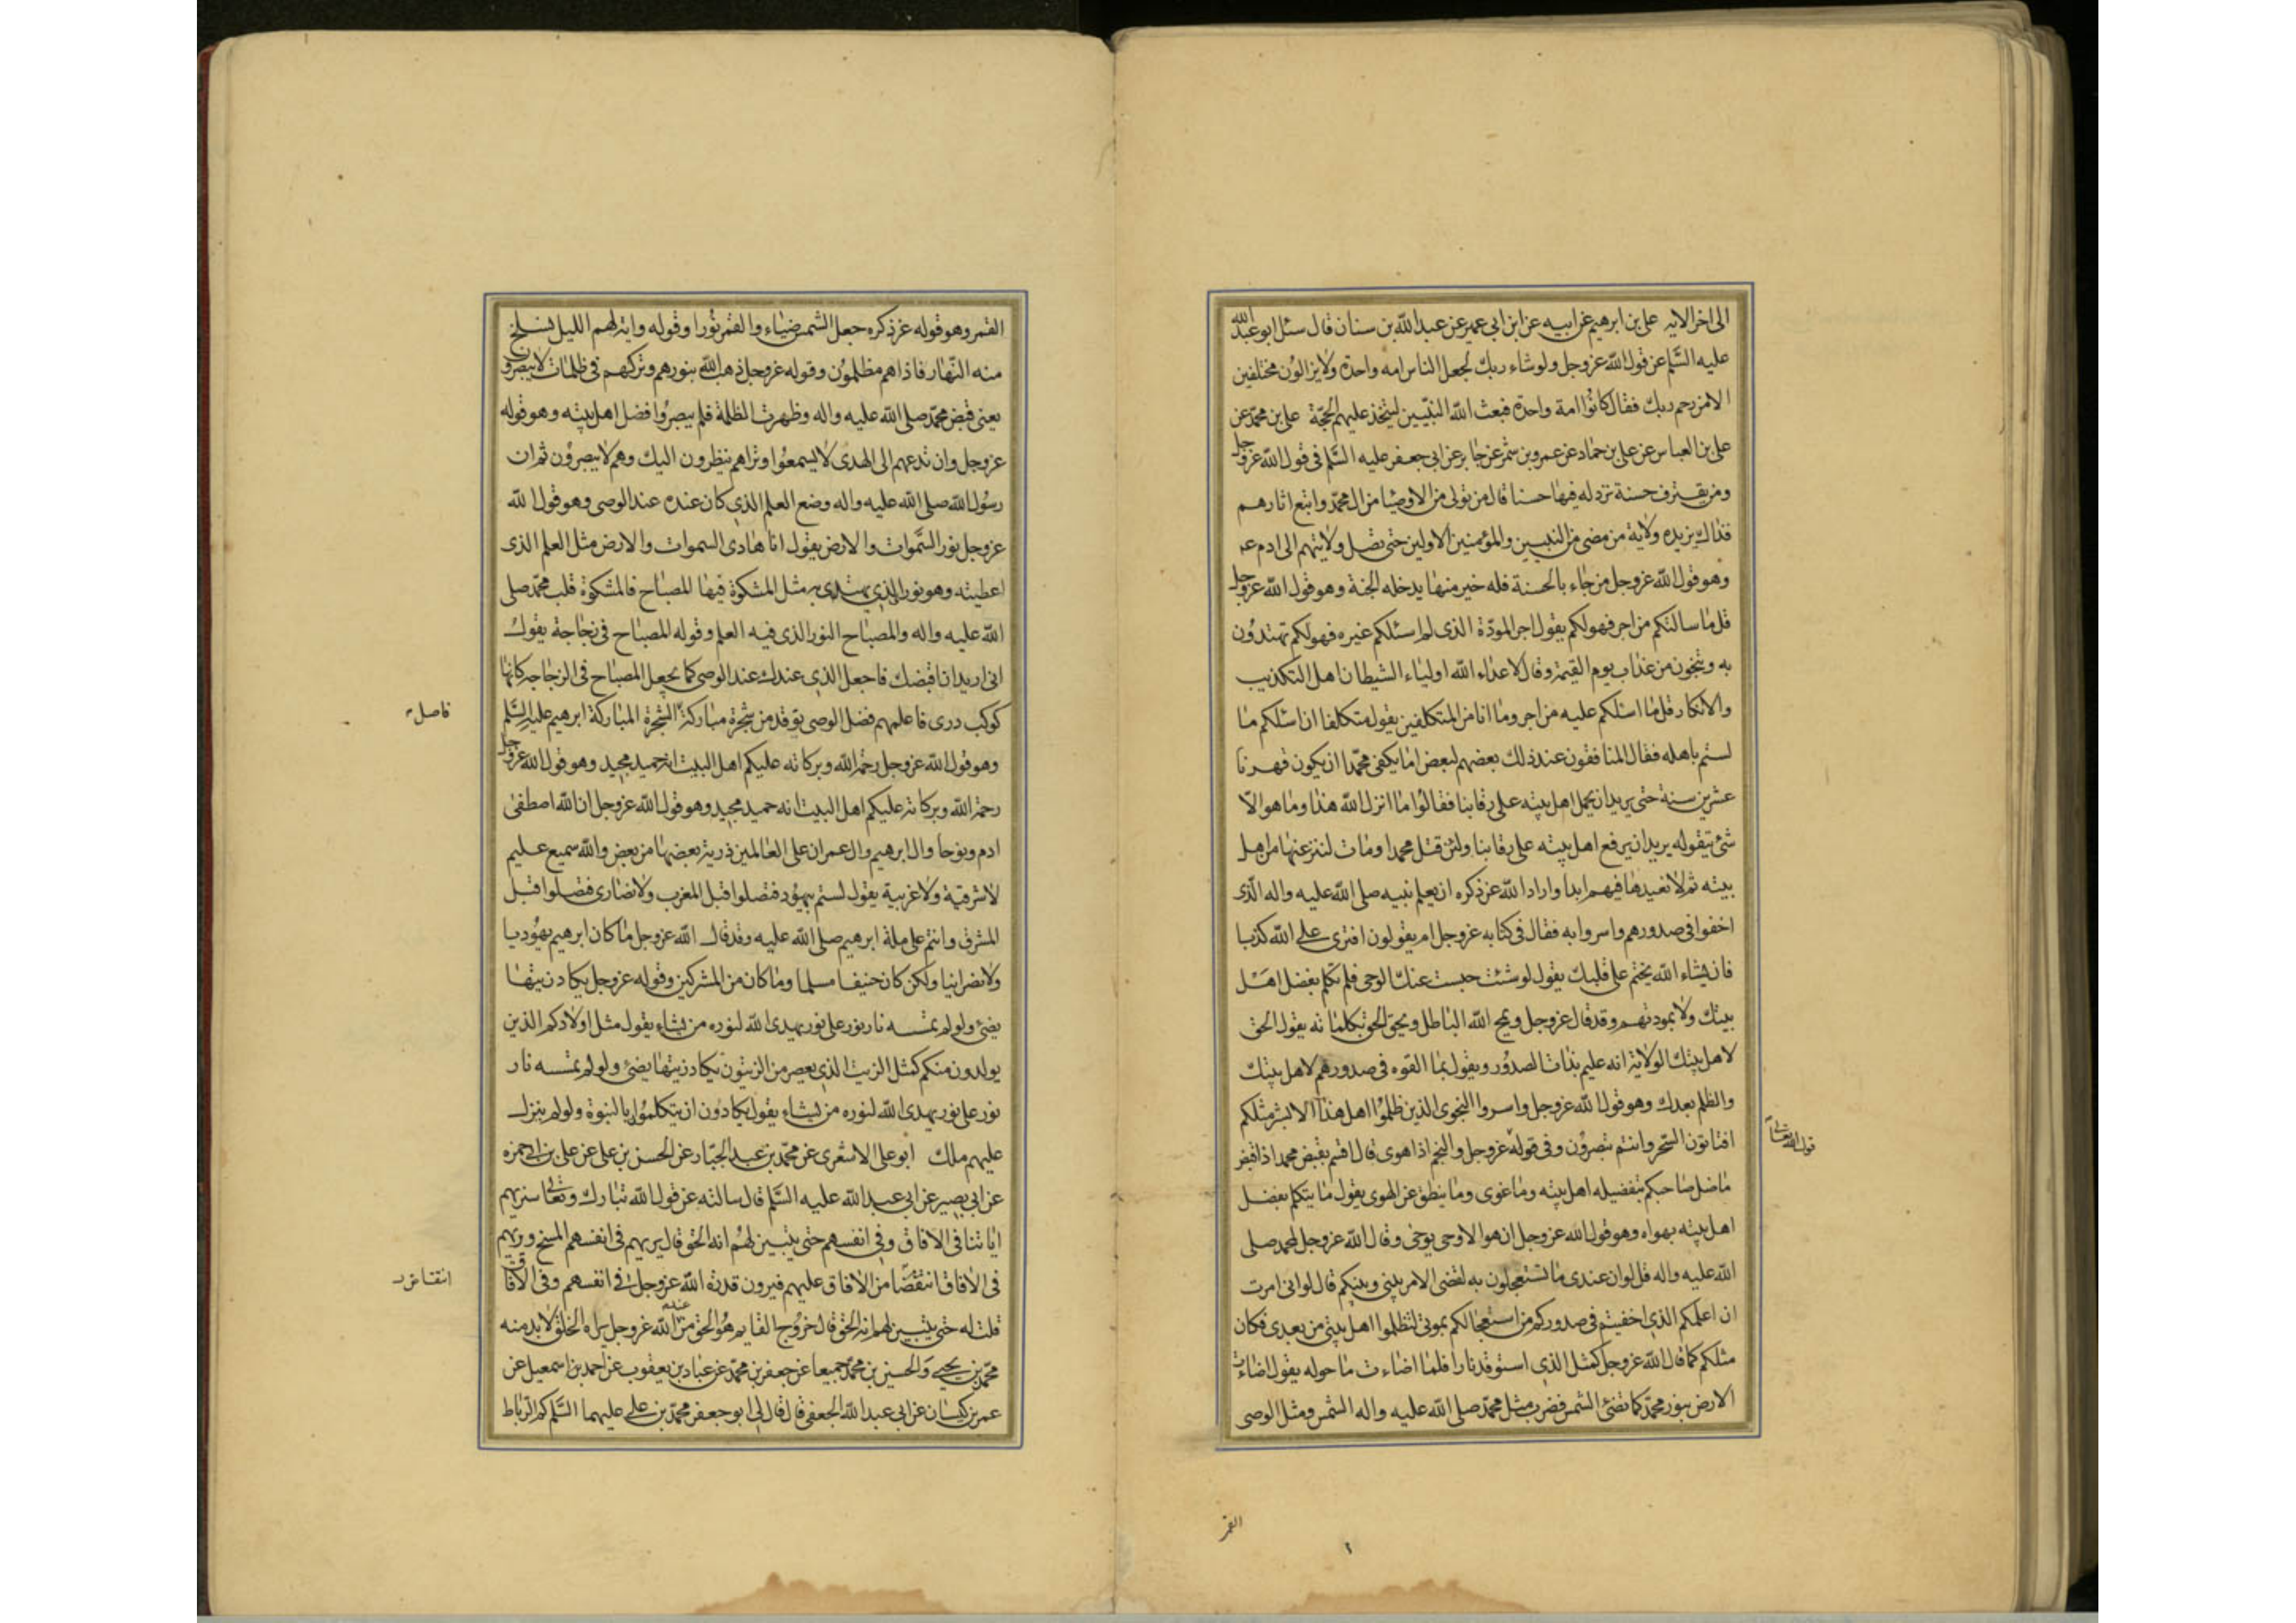 الى اخر الايه على بن ابرهيم عن ابيه عن ابن ابى عمير عن عبد الله بن سنان قال سئل ابو عبد الله
عليه السلم عن قول الله عز وجل ولو شاء ربك لجعل الناس امه واحدة ولا يزالون مختلفين
الا من رحم ربك فقال كانوا امة واحدة فبعث الله النبيين ليتخذ عليهم الحجة على بن محمد عن
على بن العباس عن على بن حماد عن عمرو بن شمر عن جابر عن ابى جعفر عليه السلم فى قول الله عز وجل
ومن يقترف حسنة نزد له فيها حسنا قال من تولى من الاوصيا من ال محمد واتبع اثارهم
فذاك يزيده ولاية من مضى من النبيين والمؤمنين الاولين حتى تصل ولايتهم الى ادم عم
وهو قول الله عز وجل من جاء بالحسنة فله خير منها يدخله الجنة وهو قول الله عز وجل
قل ما سالتكم من اجر فهو لكم يقول اجر المودة الذى لم اسئلكم غيره فهو لكم تهتدون
به وتنجون من عذاب يوم القيمة وقال لاعداء الله اولياء الشيطان اهل التكذيب
والانكار قل ما اسئلكم عليه من اجر وما انا من المتكلفين يقول متكلفا ان اسئلكم ما
لستم باهله فقال المنافقون عند ذلك بعضهم لبعض اما يكفى محمدا ان يكون قهرنا
عشرين سنة حتى يريد ان يحمل اهل بيته على رقابنا فقالوا ما انزل الله هذا وما هو الا
شئ يتقوله يريد ان يرفع اهل بيته على رقابنا ولئن قتل محمدا ومات لننزعنها من اهل
بيته ثم لا نعيدها فيهم ابدا واراد الله عز ذكره ان يعلم نبيه صلى الله عليه واله الذى
اخفوا فى صدورهم واسروا به فقال فى كتابه عز وجل ام يقولون افترى على الله كذبا
فان يشاء الله يختم على قلبك يقول لو شئت حبست عنك الوحى فلم تكلم بفضل اهل
بيتك ولا بمودتهم وقد قال عز وجل ويمح الله الباطل ويحق الحق بكلماته يقول الحق
لاهل بيتك الولاية انه عليم بذات الصدور ويقول بما القوه فى صدورهم لاهل بيتك
والظلم بعدك وهو قول الله عز وجل واسروا النجوى الذين ظلموا اهل هذا الا بشر مثلكم
افتاتون السحر وانتم تبصرون وفى قوله عز وجل والنجم اذا هوى قال اقسم بقبض محمد اذا قبض
قول الله تعالى
ما ضل صاحبكم بتفضيله اهل بيته وما غوى وما ينطق عن الهوى يقول ما يتكلم بفضل
اهل بيته بهواه وهو قول الله عز وجل ان هو الا وحى يوحى وقال الله عز وجل لمحمد صلى
الله عليه واله قل لو ان عندى ما تستعجلون به لقضى الامر بينى وبينكم قال لو انى امرت
ان اعلمكم الذى اخفيتم فى صدوركم من استعجالكم بموتى لتظلموا اهل بيتى من بعدى فكان
مثلكم كما قال الله عز وجل كمثل الذى استوقد نارا فلما اضاءت ما حوله يقول اضاءت
الارض بنور محمد كما تضئ الشمس فضرب مثل محمد صلى الله عليه واله الشمس ومثل الوصى
القمر
القمر وهو قوله عز ذكره جعل الشمس ضياء والقمر نورا وقوله واية لهم الليل نسلخ
منه النهار فاذا هم مظلمون وقوله عز وجل ذهب الله بنورهم وتركهم فى ظلمات لا يبصرون
يعنى قبض محمد صلى الله عليه واله وظهرت الظلمة فلم يبصروا فضل اهل بيته وهو قوله
عز وجل وان تدعهم الى الهدى لا يسمعوا وتراهم ينظرون اليك وهم لا يبصرون ثم ان
رسول الله صلى الله عليه واله وضع العلم الذى كان عنده عند الوصى وهو قول الله
عز وجل نور السموات والارض يقول انا هادى السموات والارض مثل العلم الذى
اعطيته وهو نور الذى يهتدى به مثل المشكوة فيها المصباح فالمشكوة قلب محمد صلى
الله عليه واله والمصباح النور الذى فيه العلم وقوله المصباح فى زجاجة يقول
انى اريد ان اقبضك فاجعل الذى عندك عند الوصى كما يجعل المصباح فى الزجاجه كانها
كوكب درى فاعلمهم فضل الوصى يوقد من شجرة مباركة الشجرة المباركة ابرهيم عليه السلم
فاصل
وهو قول الله عز وجل رحمة الله وبركاته عليكم اهل البيت انه حميد مجيد وهو قول الله عز وجل
رحمة الله وبركاته عليكم اهل البيت انه حميد مجيد وهو قول الله عز وجل ان الله اصطفى
ادم ونوحا وال ابرهيم وال عمران على العالمين ذرية بعضها من بعض والله سميع عليم
لا شرقية ولا غربية يقول لستم بيهود فتصلوا قبل المغرب ولا نصارى فتصلوا قبل
المشرق وانتم على ملة ابرهيم صلى الله عليه وقد قال الله عز وجل ما كان ابرهيم يهوديا
ولا نصرانيا ولكن كان حنيفا مسلما وما كان من المشركين وقوله عز وجل يكاد زيتها
يضئ ولو لم تمسسه نار نور على نور يهدى الله لنوره من يشاء يقول مثل اولادكم الذين
يولدون منكم كمثل الزيت الذى يعصر من الزيتون يكاد زيتها يضئ ولو لم تمسسه نار
نور على نور يهدى الله لنوره من يشاء يقول يكادون ان يتكلموا بالنبوة ولو لم ينزل
عليهم ملك ابو على الاشعرى عن محمد بن عبد الجبار عن الحسن بن على عن على بن ابى حمزه
عن ابى بصير عن ابى عبد الله عليه السلم قال سالته عن قول الله تبارك وتعالى سنريهم
اياتنا فى الافاق وفى انفسهم حتى يتبين لهم انه الحق قال يريهم فى انفسهم المسخ ويريهم
فى الافاق انتقضا من الافاق عليهم فيرون قدرة الله عز وجل فى انفسهم وفى الافاق
انتقاض
قلت له حتى يتبين لهم انه الحق قال خروج القايم هو الحق من عند الله عز وجل يراه الخلق لا بد منه
محمد بن يحيى والحسين بن محمد جميعا عن جعفر بن محمد عن عباد بن يعقوب عن احمد بن اسمعيل عن
عمر بن كيسان عن ابى عبد الله الجعفى قال قال لى ابو جعفر محمد بن على عليهما السلم كم الرباط